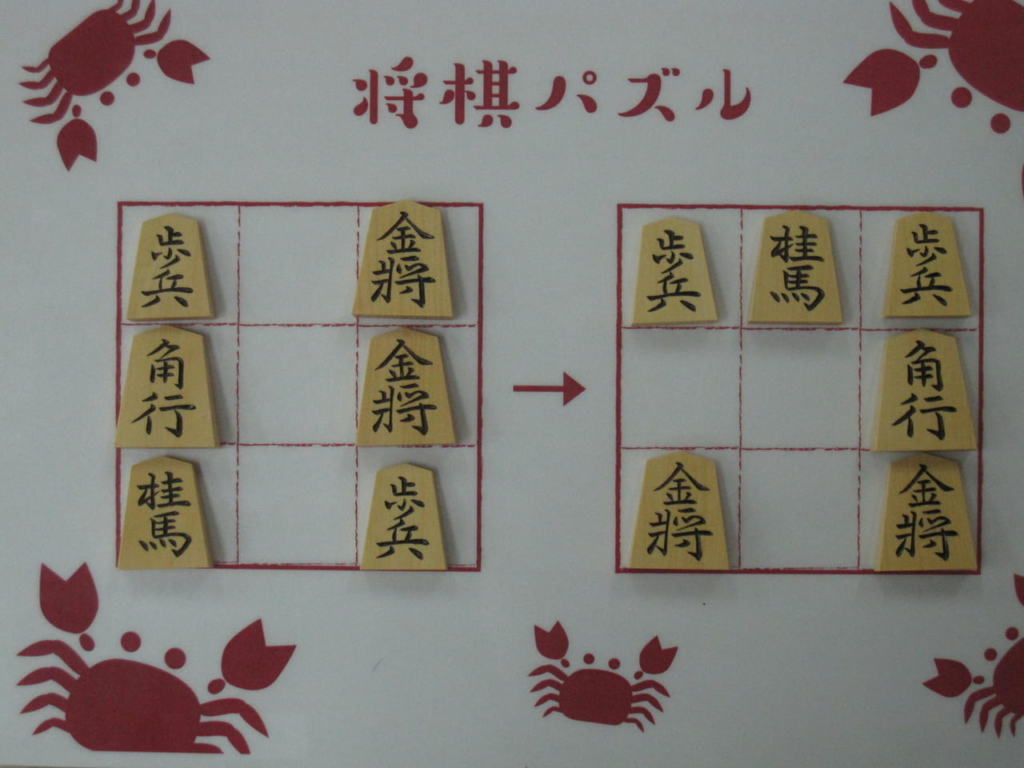 将棋パズル
歩兵 金将
角行 金将
桂馬 歩兵
歩兵 桂馬 歩兵
角行
金将 金将